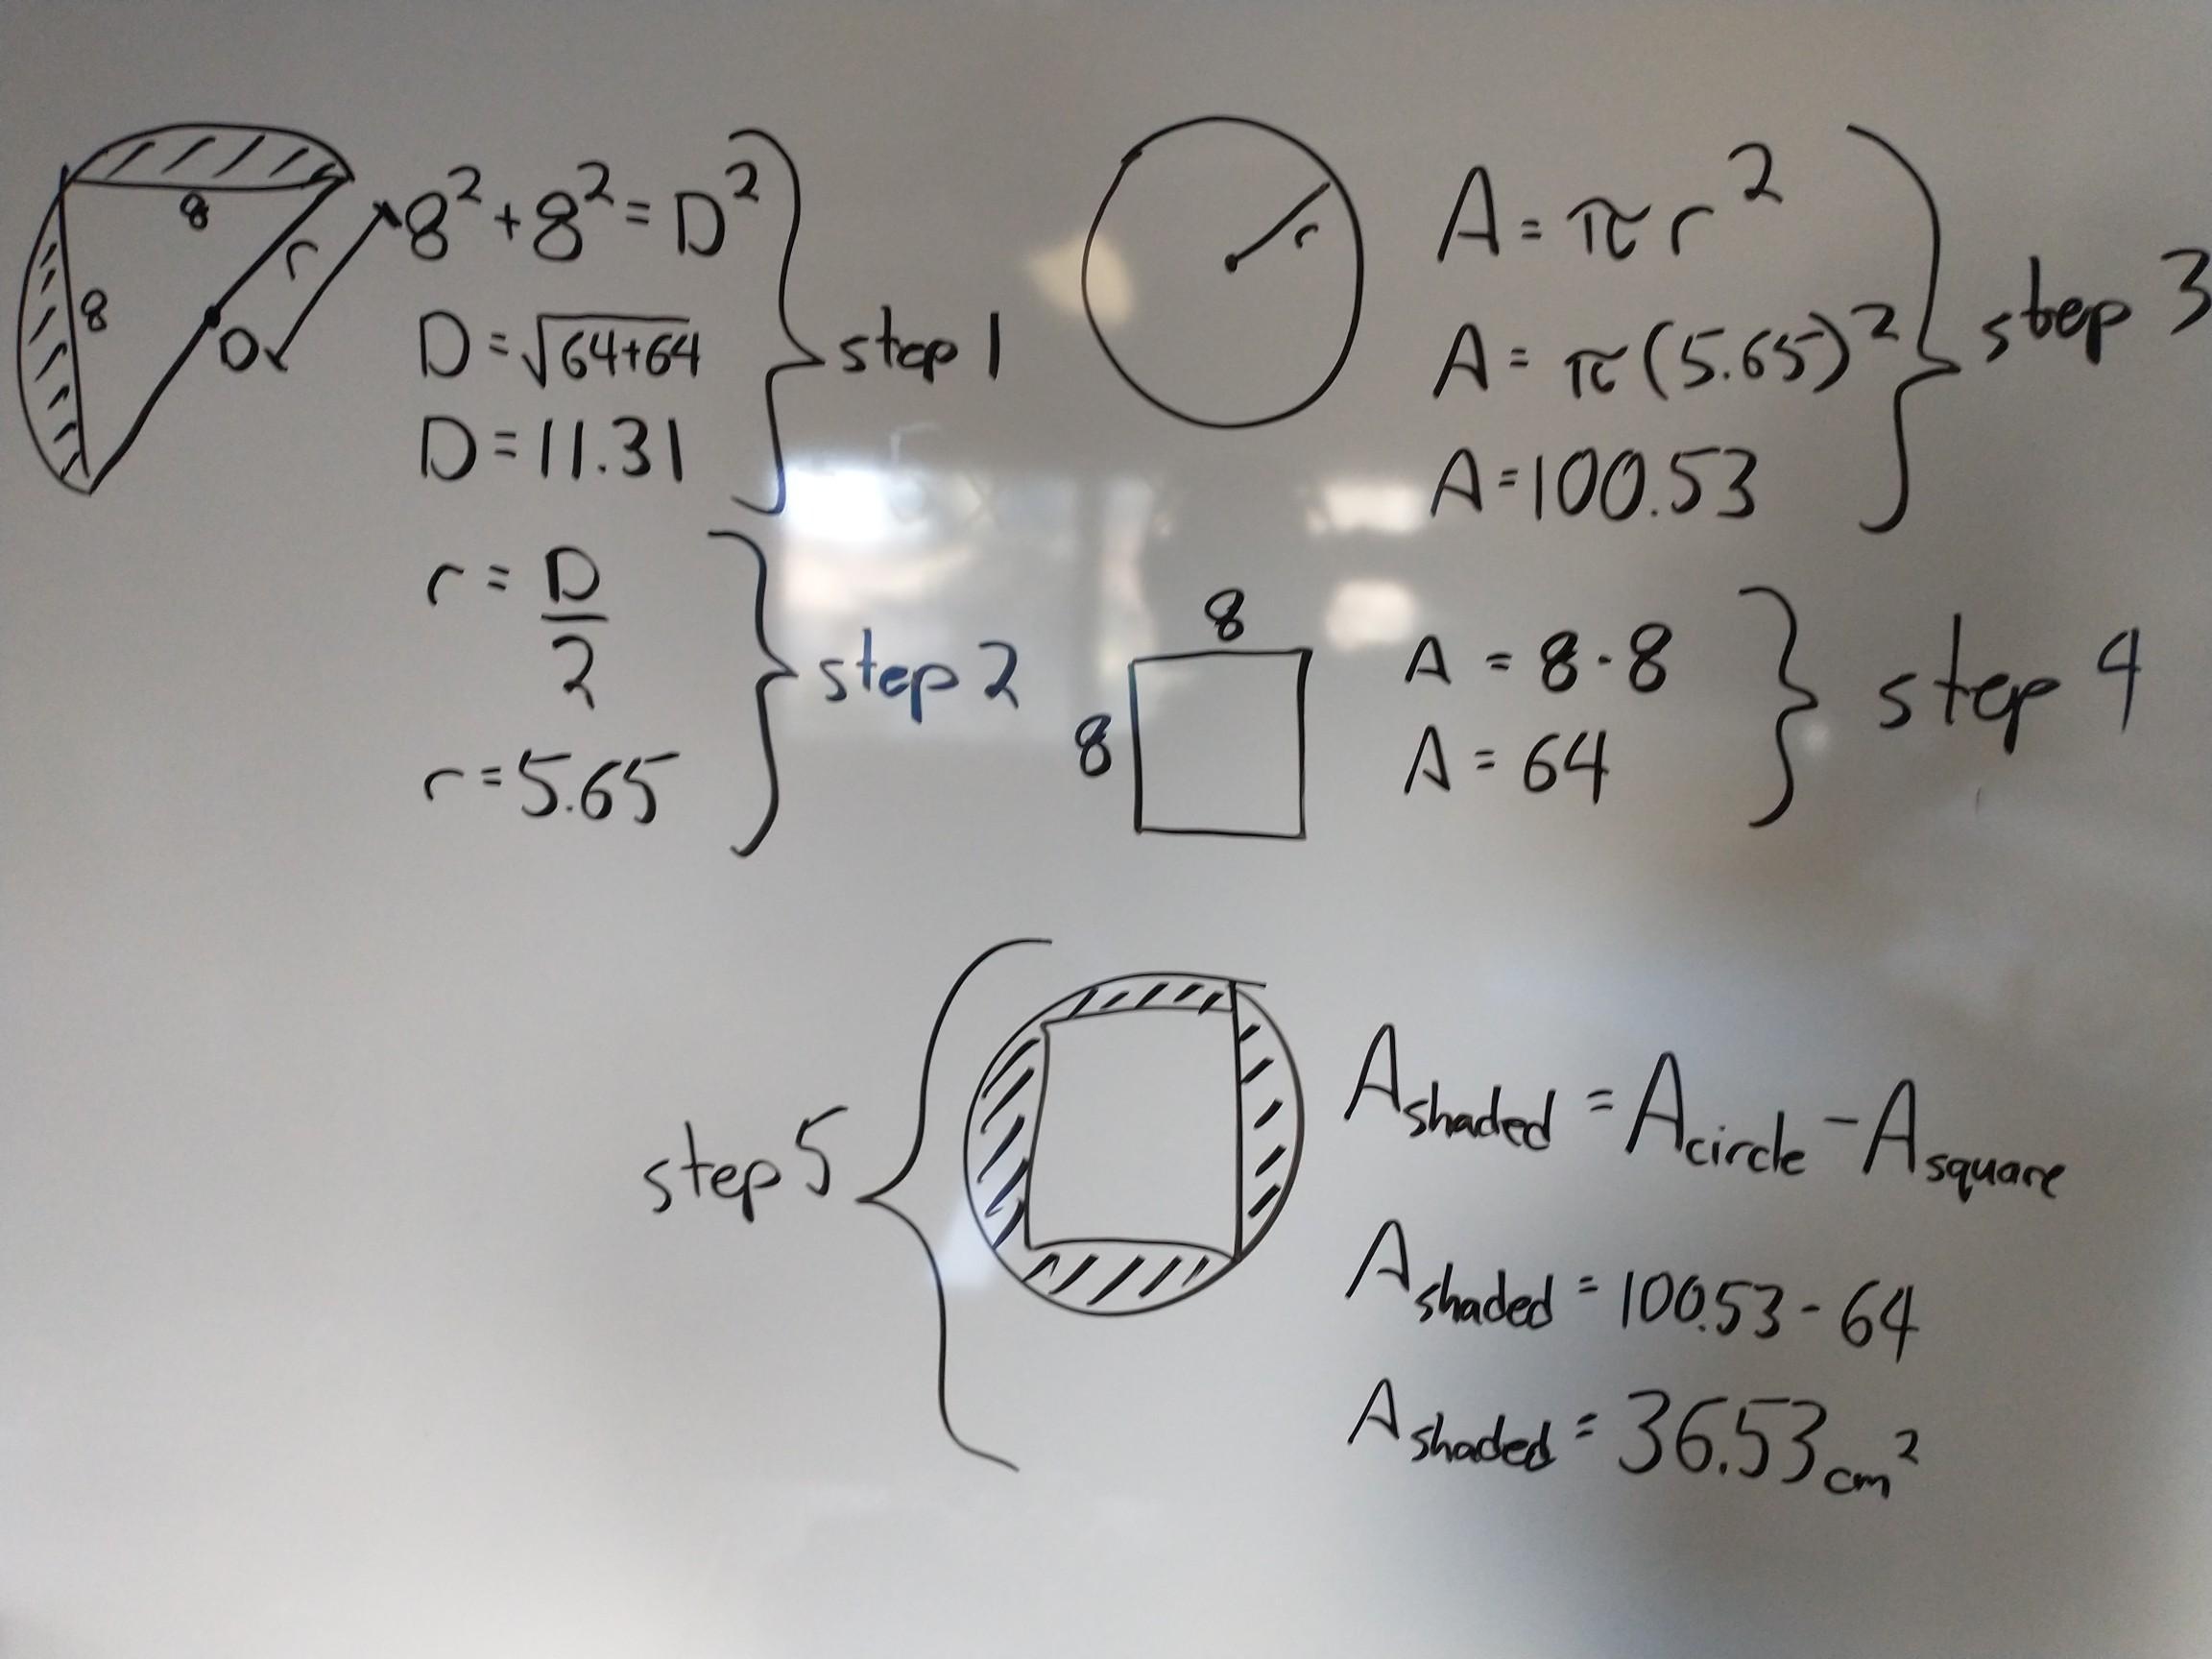 8
8
r
D
8² + 8² = D²
D = √64+64
D = 11.31
step 1
r = D/2
r = 5.65
step 2
r
A = πr²
A = π(5.65)²
A = 100.53
step 3
8
8
A = 8·8
A = 64
step 4
step 5
A shaded = A circle - A square
A shaded = 100.53 - 64
A shaded = 36.53 cm²